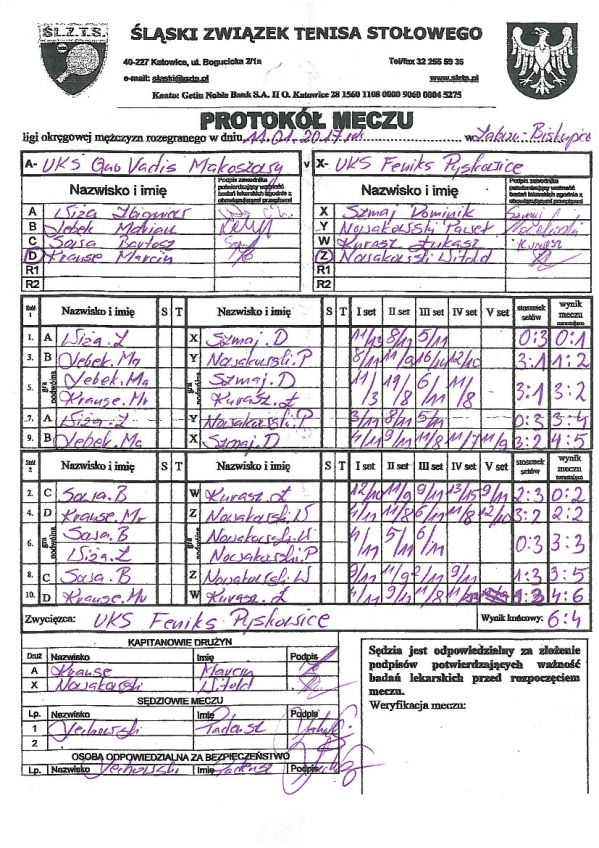 ŚL.Z.T.S.
ŚLĄSKI ZWIĄZEK TENISA STOŁOWEGO
40-227 Katowice, ul. Bogucicka 2/1a Tel/fax 32 255 59 35
e-mail: slaski@szts.pl www.slzts.pl
Konto: Getin Noble Bank S.A. II O. Katowice 28 1560 1108 0000 9060 0004 5275
PROTOKÓŁ MECZU
ligi okręgowej mężczyzn rozegranego w dniu 11.01.2017 rok w Zabrzu-Biskupice
A- UKS Quo Vadis Makoszowy v X- UKS Feniks Pyskowice
Nazwisko i imię Podpis zawodnika potwierdzający ważność badań lekarskich zgodnie z obowiązującymi przepisami Nazwisko i imię Podpis zawodnika potwierdzający ważność badań lekarskich zgodnie z obowiązującymi przepisami
A Wiża Zbigniew X Szmaj Dominik
B Jebek Marian Y Nowakowski Paweł
C Sosa Bartosz W Kurasz Łukasz Kurasz
D Krause Marcin Z Nowakowski Witold
R1 R1
R2 R2
Stół 1 Nazwisko i imię S T Nazwisko i imię S T I set II set III set IV set V set stosunek setów wynik meczu narastająco
1. A Wiża.Z X Szmaj.D 11/13 8/11 5/11 0:3 0:1
3. B Jebek.Ma Y Nowakowski.P 8/11 11/9 16/14 12/10 3:1 1:2
5. gra podwójna Jebek.Ma Szmaj.D 11/3 19/8 6/11 11/8 3:1 3:2
Krause.Mc Kurasz.Ł
7. A Wiża.Z Y Nowakowski.P 3/11 8/11 5/11 0:3 3:4
9. B Jebek.Ma X Szmaj.D 4/11 9/11 11/8 11/7 11/9 3:2 4:5
Stół 2 Nazwisko i imię S T Nazwisko i imię S T I set II set III set IV set V set stosunek setów wynik meczu narastająco
2. C Sosa.B W Kurasz.Ł 12/10 11/9 9/11 13/15 9/11 2:3 0:2
4. D Krause.Mr Z Nowakowski.W 4/11 11/8 6/11 11/8 12/10 3:2 2:2
6. gra podwójna Sosa.B Nowakowski.W 4/11 5/11 6/11 0:3 3:3
Wiża.Z Nowakowski.P
8. C Sosa.B Z Nowakowski.W 9/11 11/9 2/11 9/11 1:3 3:5
10. D Krause.Mr W Kurasz.Ł 4/11 11/9 8/11 1:3 4:6
Zwycięzca: UKS Feniks Pyskowice Wynik końcowy: 6:4
KAPITANOWIE DRUŻYN
Druż Nazwisko Imię Podpis
A Krause Marcin
X Nowakowski Witold
SĘDZIOWIE MECZU
Lp. Nazwisko Imię Podpis
1 Jechowski Tadeusz
2
OSOBA ODPOWIEDZIALNA ZA BEZPIECZEŃSTWO
Lp. Nazwisko Jechowski Imię Tadeusz Podpis
Sędzia jest odpowiedzialny za złożenie
podpisów potwierdzających ważność
badań lekarskich przed rozpoczęciem
meczu.
Weryfikacja meczu: